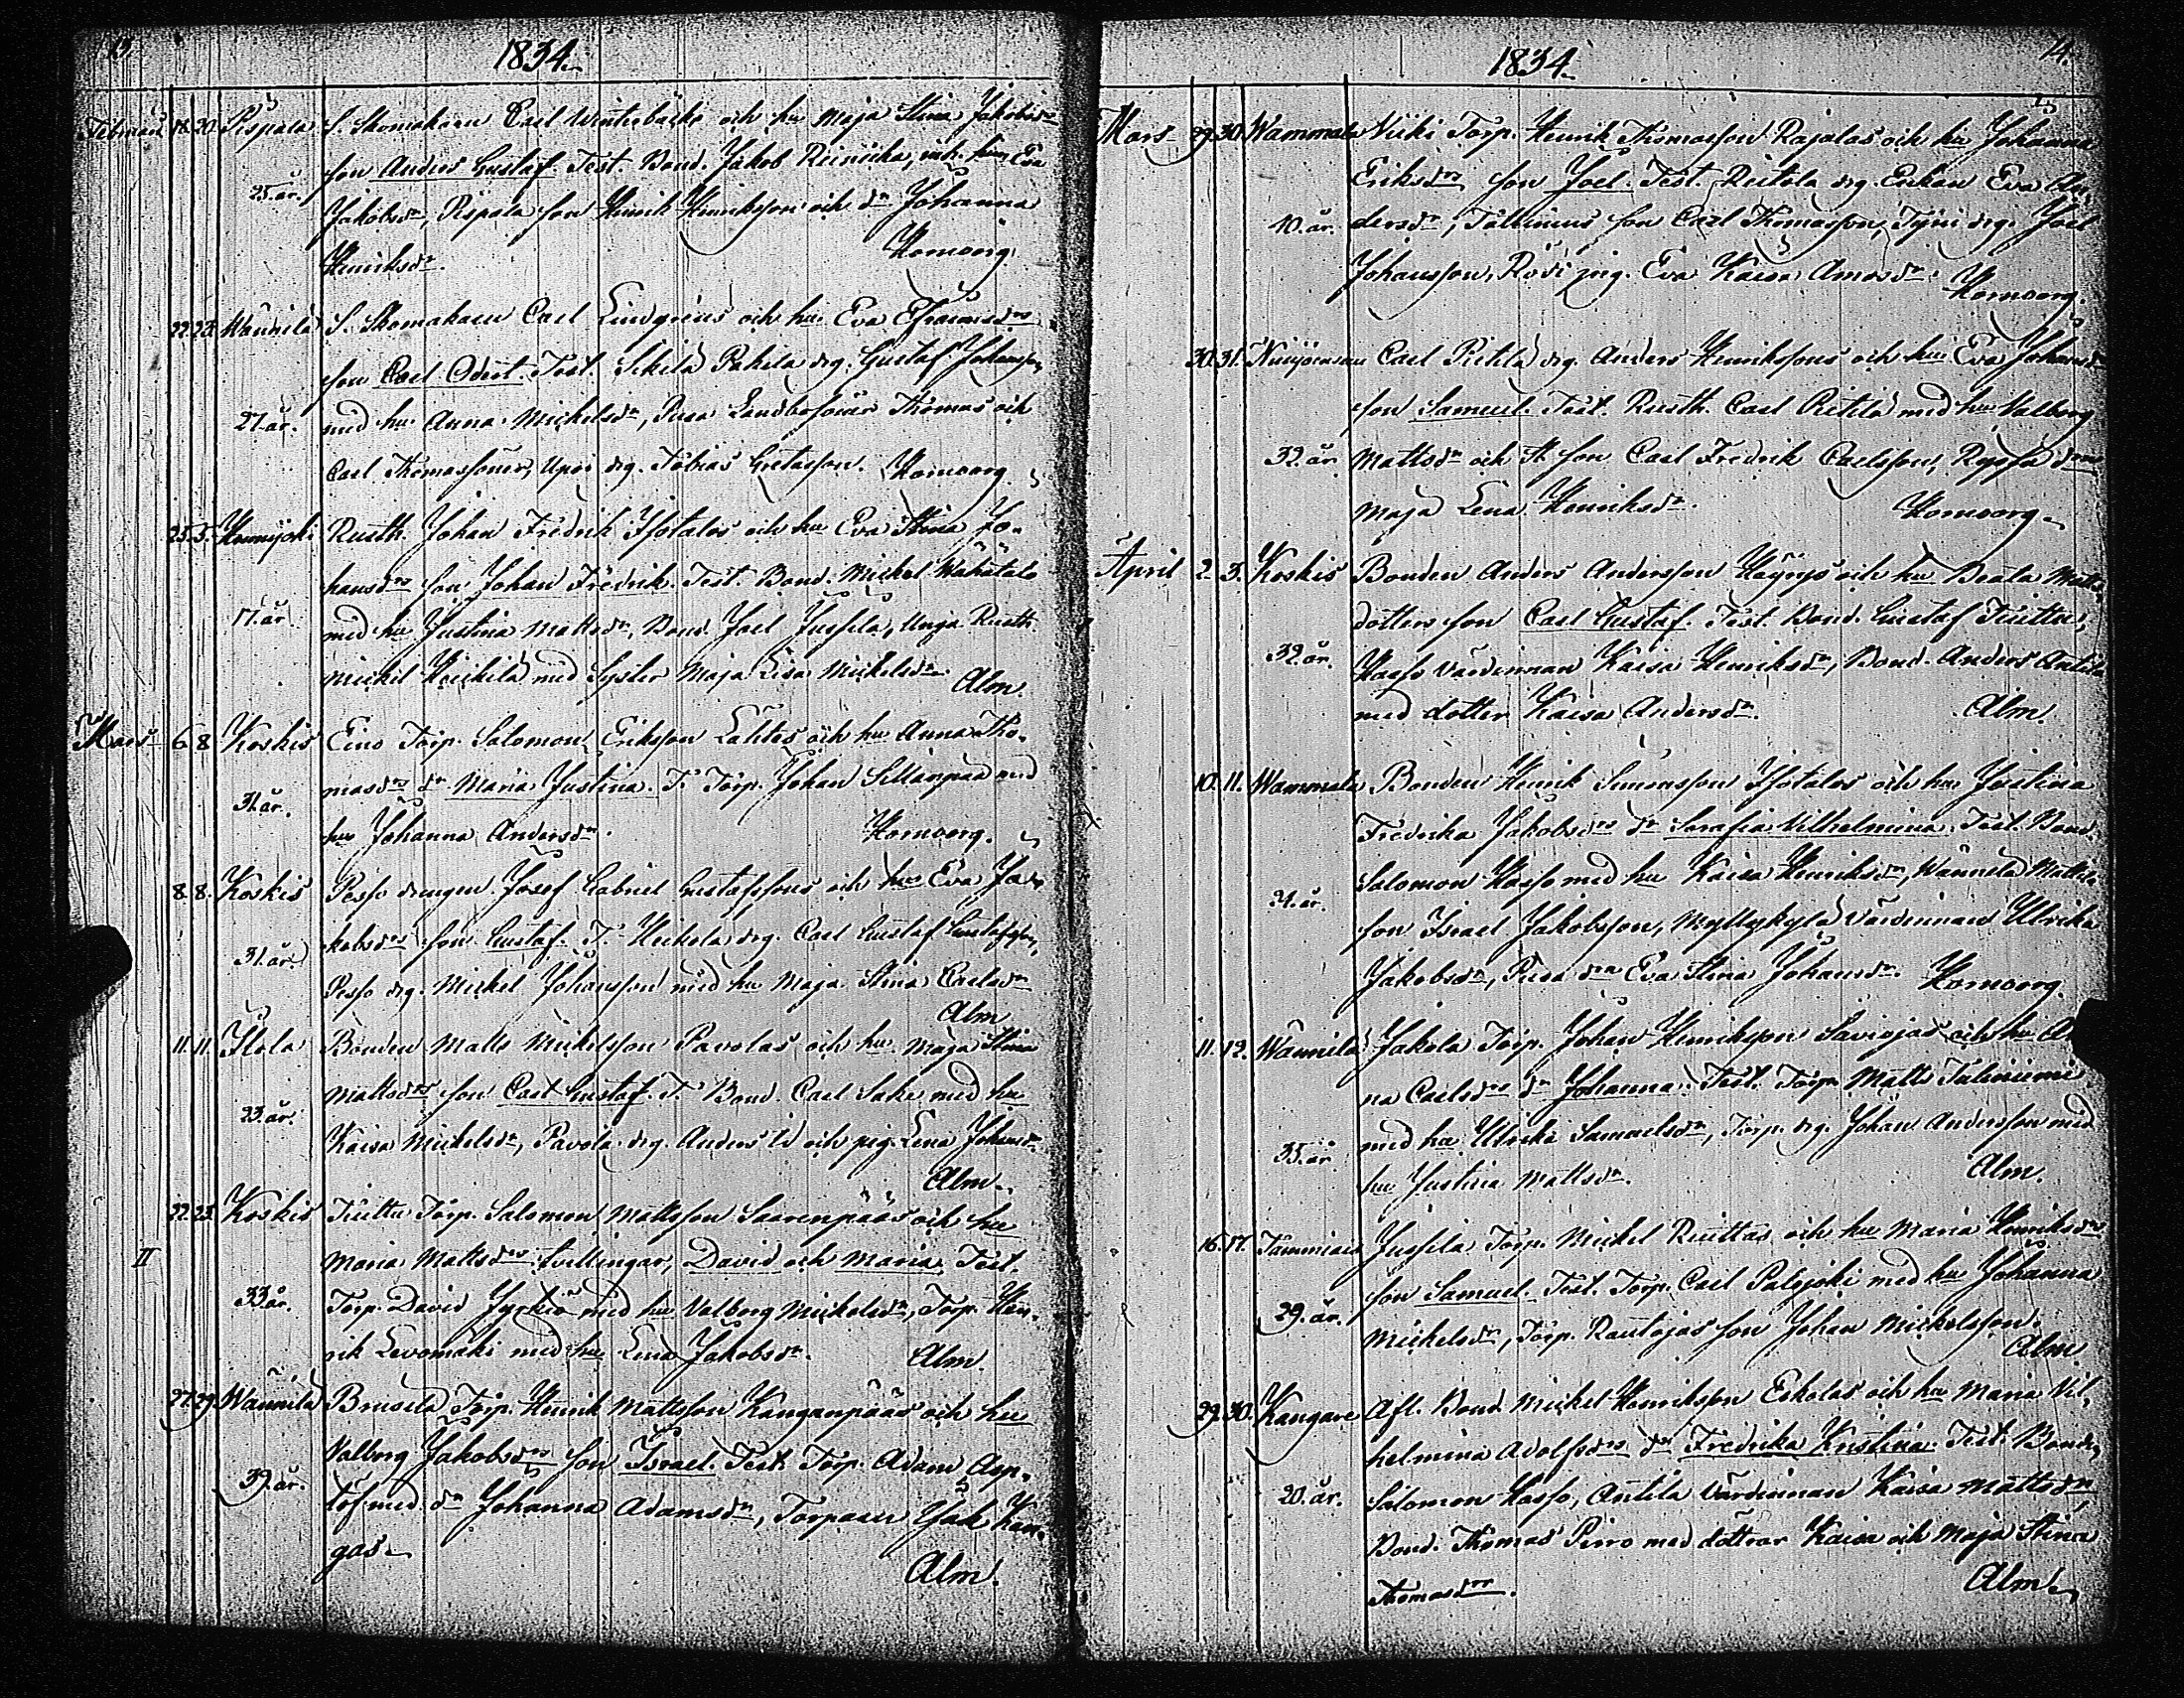 13.
1834.
Februari 18. 20. Pispala S. Skomakaren Carl Winterbäcks och hu Maja Stina Jakobsdrs
son Anders Gustaf. Test. Bond. Jakob Reinicka, ink. hun Eva
25. år. Jakobsdr, Pispala son Henrik Henriksson och dr Johanna
Henriksdr. Homoorg.
22. 23. Wännilä S. Skomakaren Carl Lindgréns och hu Eva Efraimsdrs
son Carl Odert. Test. Sikilä Pakila drg. Gustaf Johansson
27. år. med hu Anna Michelsdr, Pusa Landbosöner Thomas och
Carl Thomassöner, Upoi drg. Tobias Gretasson. Homoorg.
25. 5. Kumijoki Rusth. Johan Fredrik Isotalos och hu Eva Stina Jo-
hansdrs son Johan Fredrik. Test. Bond. Mickel Wähätalo
17. år. med hu Justina Mattsdr, Bond. Joel Jussila, Unga Rusth.
Mickel Heickilä med Syster Maja Lisa Mickelsdr. Alm.
Mars 6. 8. Koskis Eino Torp. Salomon Eriksson Lahtis och hu Anna Tho-
masdrs dr Maria Justina. T. Torp. Johan Sillanpää med
31. år. hu Johanna Andersdr. Homoorg.
8. 8. Koskis Pesso drengen Josef Gabriel Gustafssons och hu Eva Ja-
kobsdrs son Gustaf. T. Heikola drg. Carl Gustaf Gustafsson,
31. år. Pesso drg. Mickel Johansson med hu Maja Stina Carlsdr
Alm.
11. 11. Illola Bonden Matts Mickelsson Pavolas och hu Maja Stina
Mattsdrs son Carl Gustaf. T. Bond. Carl Sake med hu
23. år. Kaisa Mickelsdr, Pavola drg. Anders Id och pig. Lena Johansdr
Alm.
22. 23. Koskis Tiutta Torp. Salomon Mattsson Saarenpääs och hu
II Maria Mattsdrs tvillingar, David och Maria. Test.
33. år. Torp. David Jyrkiö med hu Valborg Mickelsdr, Torp. Hen-
rik Levomäki med hu Lena Jakobsdr. Alm.
27. 29. Wännilä Brusila Torp. Henrik Mattsson Kanganpääs och hu
Valborg Jakobsdrs son Israel. Test. Torp. Adam Asp-
39. år. löf med dr Johanna Adamsdr, Torparen Isak Kan-
gas. Alm.
14.
1834.
Mars 29. 30. Wammala Niki Torp. Henrik Thomasson Rajalas och hu Johanna
Eriksdrs son Joel. Test. Reitola drg. Enkan Eva An-
40. år. dersdr, Tallinius son Carl Thomasson, Tyni drg. Joel
Johansson, Rosi pig. Eva Kaisa Amosdr. Homoorg.
30. 31. Nuijomaa Carl Pietilä drg. Anders Henrikssons och hu Eva Johansdrs
son Samuel. Test. Rusth. Carl Pietilä med hu Valborg
32. år. Mattsdr och St. son Carl Fredrik Carlsson, Ryssä drn
Maja Lena Henriksdr. Homoorg.
April 2. 3. Koskis Bonden Anders Andersson Häyrys och hu Beata Matts
dotters son Carl Gustaf. Test. Bond. Gustaf Tiutta,
32. år. Hasso värdinnan Kaisa Henriksdr, Bond. Anders Antila
med dotter Kaisa Andersdr. Alm.
10. 11. Wammala Bonden Henrik Simonsson Isotalos och hu Justina
Fredrika Jakobsdrs dr Serafia Vilhelmina. Test. Bond.
21. år. Salomon Hasso med hu Kaisa Henriksdr, Wännilä Mattila
son Israel Jakobsson, Myllykylä värdinnan Ulrika
Jakobsdr, Pusa drn Eva Stina Johansdr. Homoorg.
11. 12. Wännilä Jakola Torp. Johan Henriksson Saviojas och hu An
na Carlsdrs dr Johanna. Test. Torp. Matts Taliniemi
35. år. med hu Ulrika Samuelsdr, Torp. drg. Johan Andersson med
hu Justina Mattsdr. Alm.
16. 17. Tammiais Jussila Torp. Mickel Riuttas och hu Maria Henriksdrs
son Samuel. Test. Torp. Carl Palojoki med hu Johanna
29. år. Mickelsdr, Torp. Rautojas son Johan Mickelsson.
Alm.
29. 30. Kangare Afl. Bond. Mickel Henriksson Eskolas och hu Maria Vil-
helmina Adolfsdrs dr Fredrika Kristina. Test. Bonden
20. år. Salomon Hasso, Antila värdinnan Kaisa Mattsdr,
Bond. Thomas Pirro med döttrar Kaisa och Maja Stina
Thomasdrr. Alm.